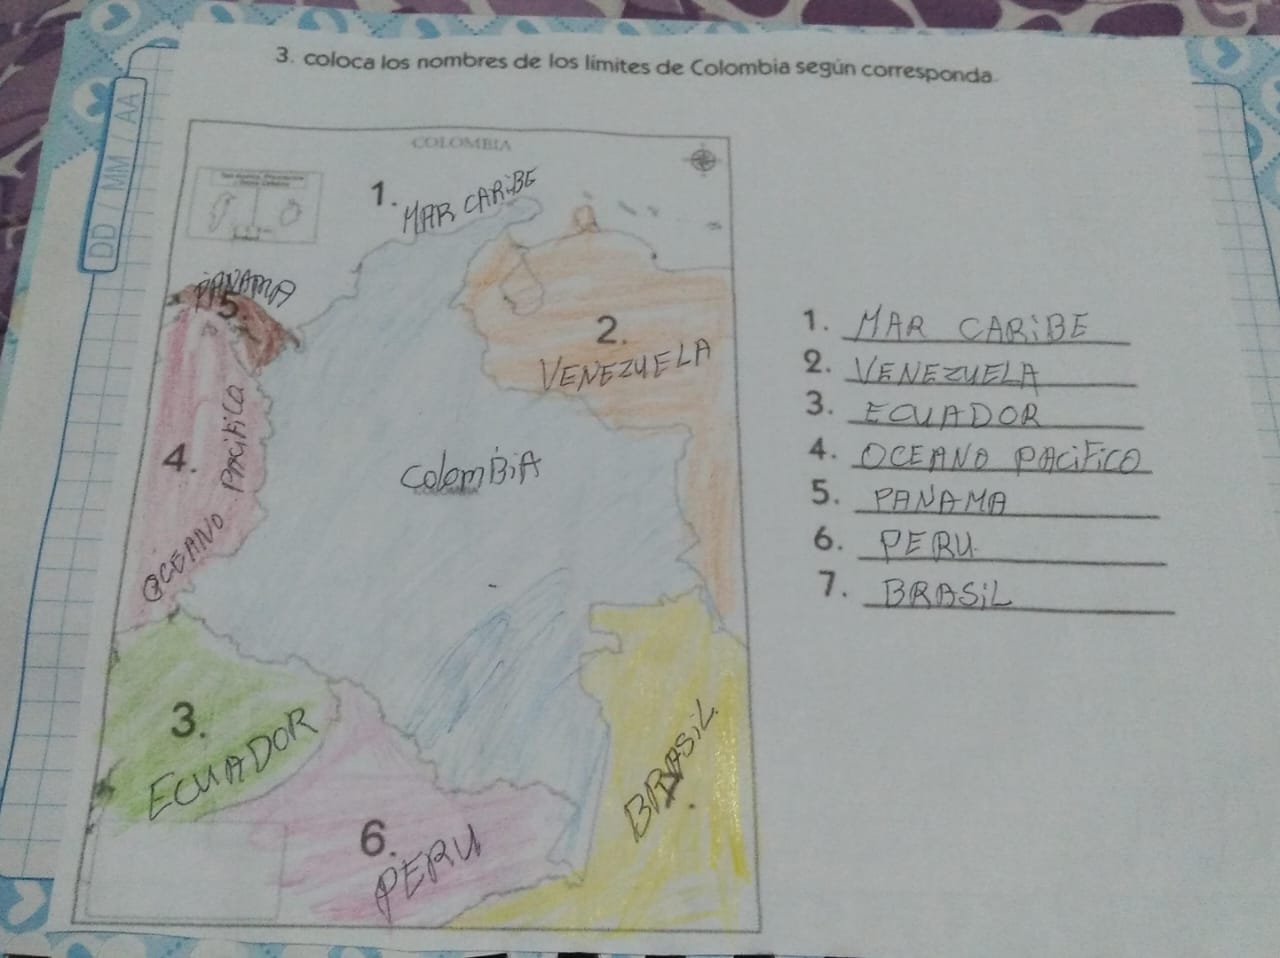 3. coloca los nombres de los límites de Colombia según corresponda.
DD / MM / AA
COLOMBIA
1. MAR CARiBE
PANAMA
5.
2.
VENEZUELA
4.
OCEANO PACiFiCO
ColomBiA
3.
ECUADOR
6.
PERU
BRASiL
1. MAR CARiBE
2. VENEZUELA
3. ECUADOR
4. OCEANO PACiFiCO
5. PANAMA
6. PERU
7. BRASiL